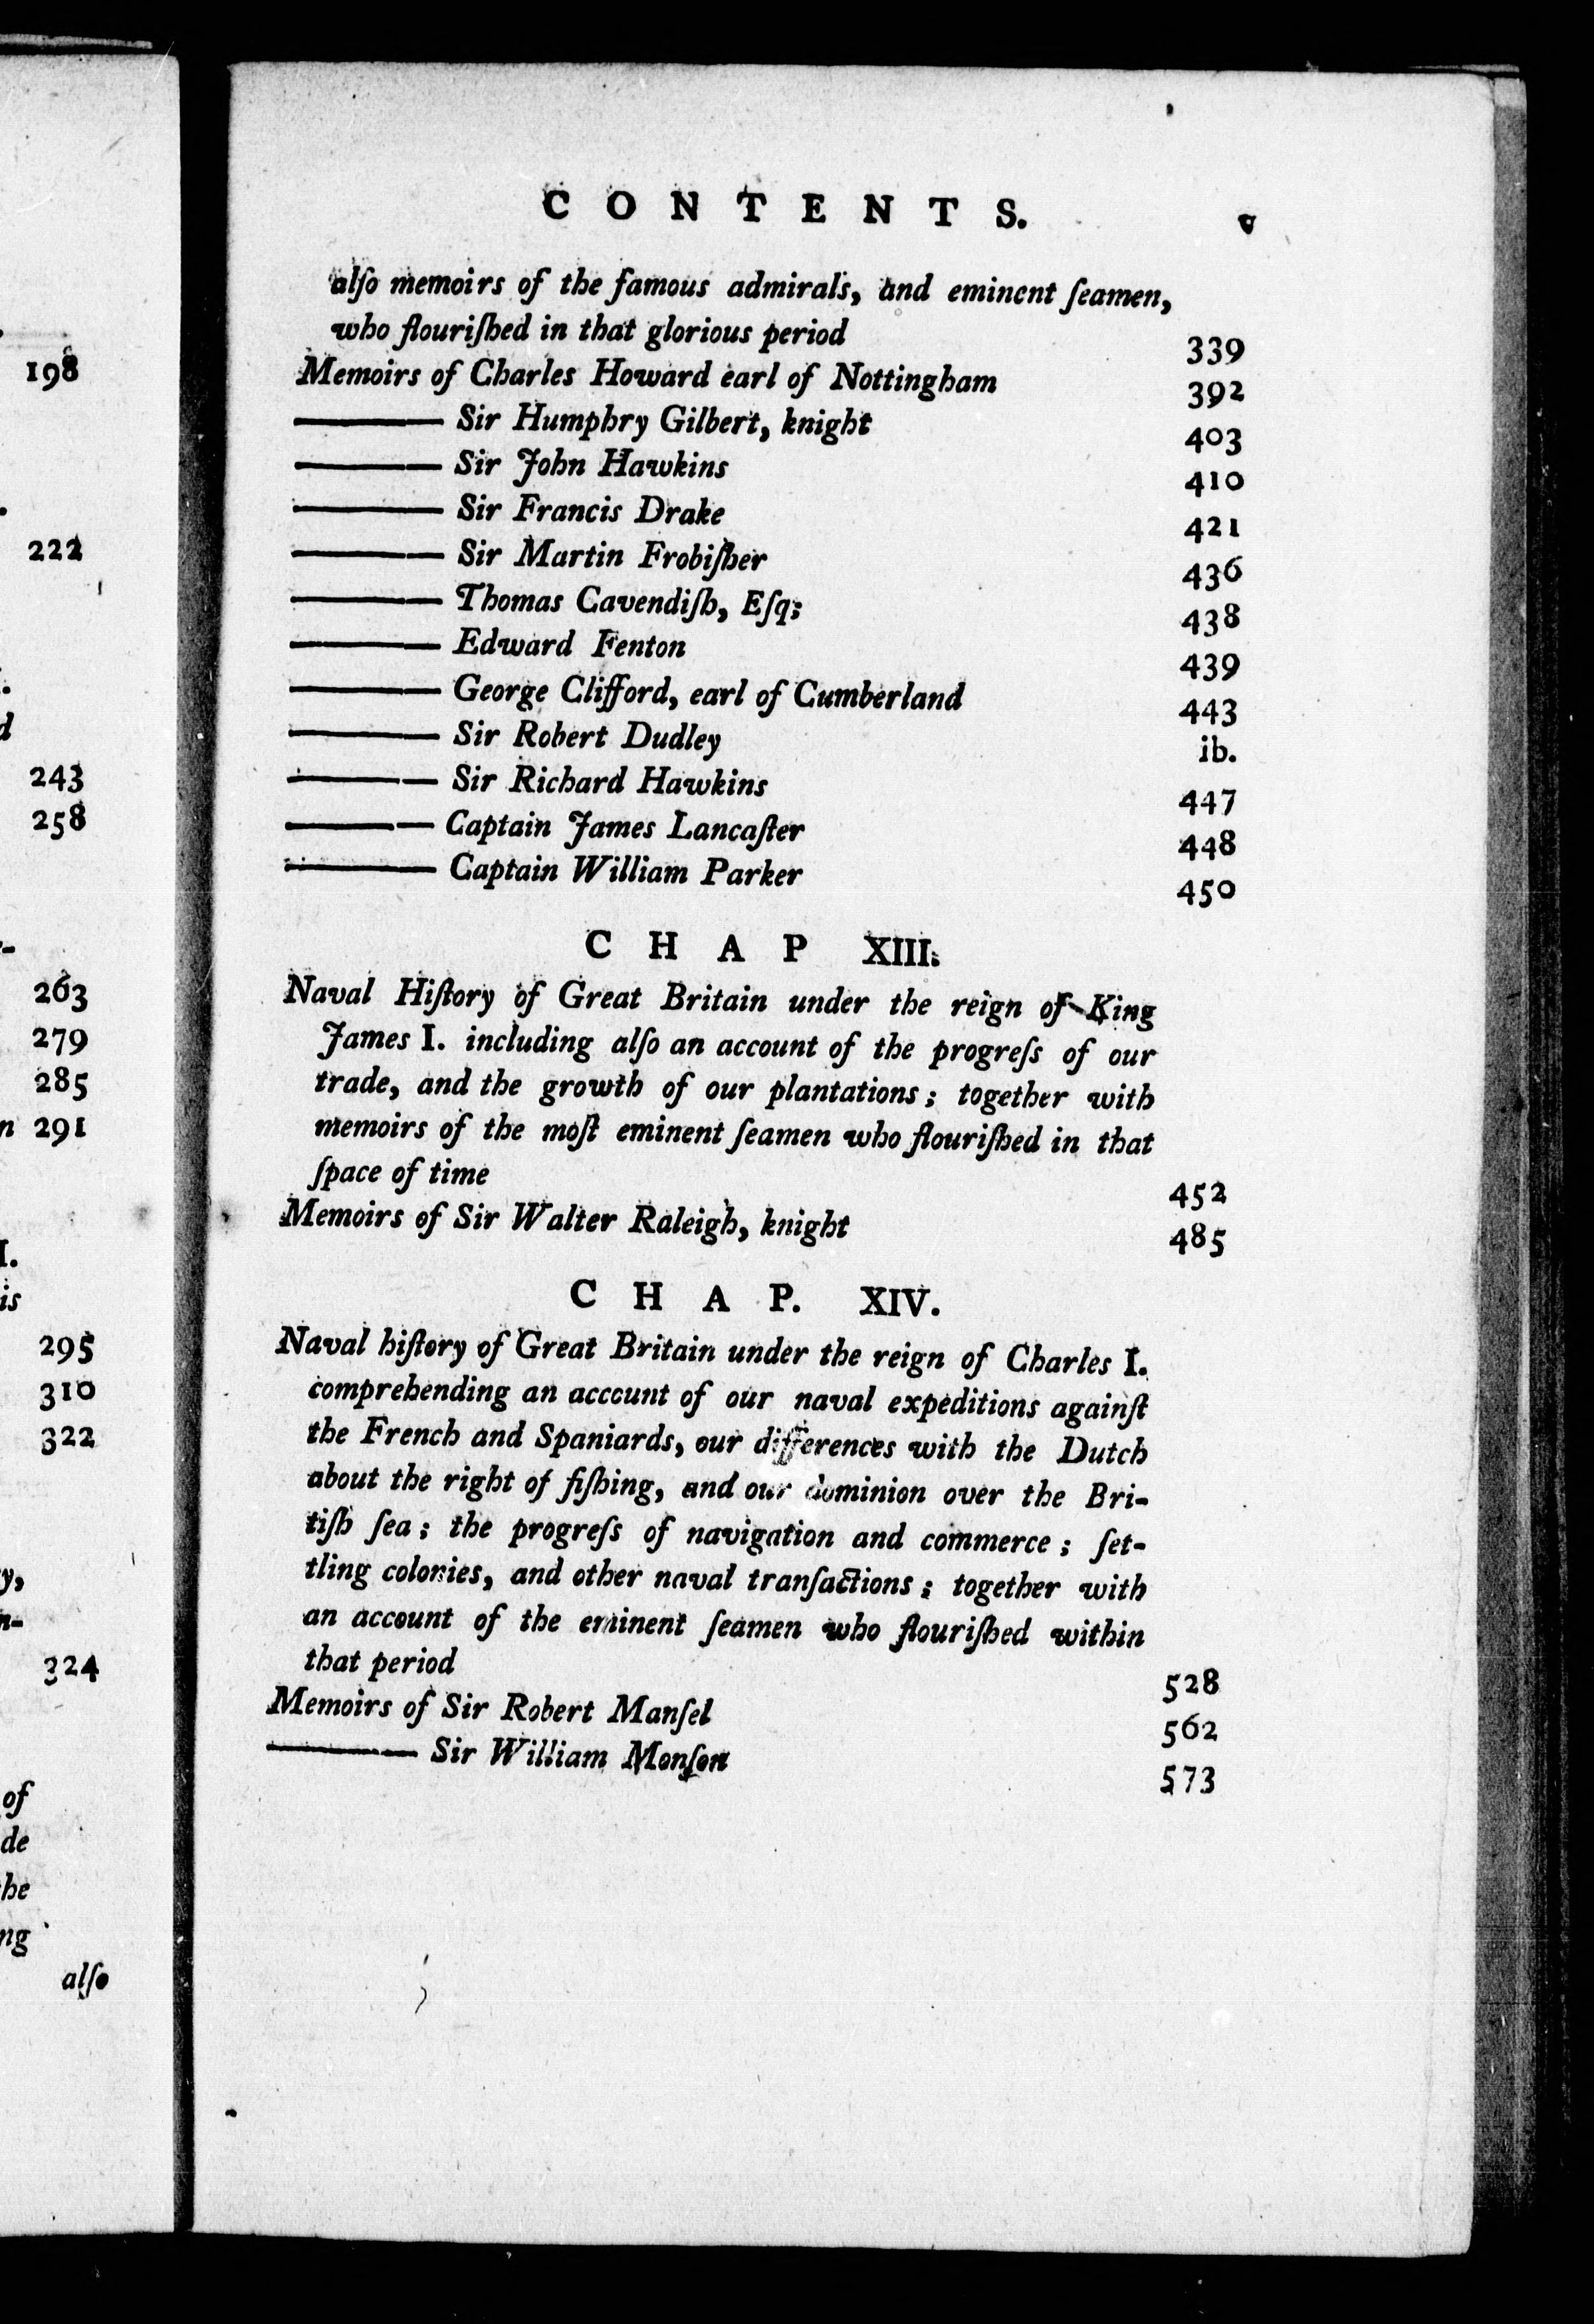 198
222
d
243
258
263
279
285
n 291
I.
is
295
310
322
y,
n-
324
of
de
he
ng
alſo
CONTENTS. v
alſo memoirs of the famous admirals, and eminent ſeamen,
who flouriſhed in that glorious period 339
Memoirs of Charles Howard earl of Nottingham 392
——— Sir Humphry Gilbert, knight 403
——— Sir John Hawkins 410
——— Sir Francis Drake 421
——— Sir Martin Frobiſher 436
——— Thomas Cavendiſh, Eſq; 438
——— Edward Fenton 439
——— George Clifford, earl of Cumberland 443
——— Sir Robert Dudley ib.
——— Sir Richard Hawkins 447
——— Captain James Lancaſter 448
——— Captain William Parker 450
CHAP XIII.
Naval Hiſtory of Great Britain under the reign of King
James I. including alſo an account of the progreſs of our
trade, and the growth of our plantations; together with
memoirs of the moſt eminent ſeamen who flouriſhed in that
ſpace of time 452
Memoirs of Sir Walter Raleigh, knight 485
CHAP. XIV.
Naval hiſtory of Great Britain under the reign of Charles I.
comprehending an account of our naval expeditions againſt
the French and Spaniards, our differences with the Dutch
about the right of fiſhing, and our dominion over the Bri-
tiſh ſea; the progreſs of navigation and commerce; ſet-
tling colonies, and other naval tranſactions; together with
an account of the eminent ſeamen who flouriſhed within
that period 528
Memoirs of Sir Robert Manſel 562
——— Sir William Monſon 573